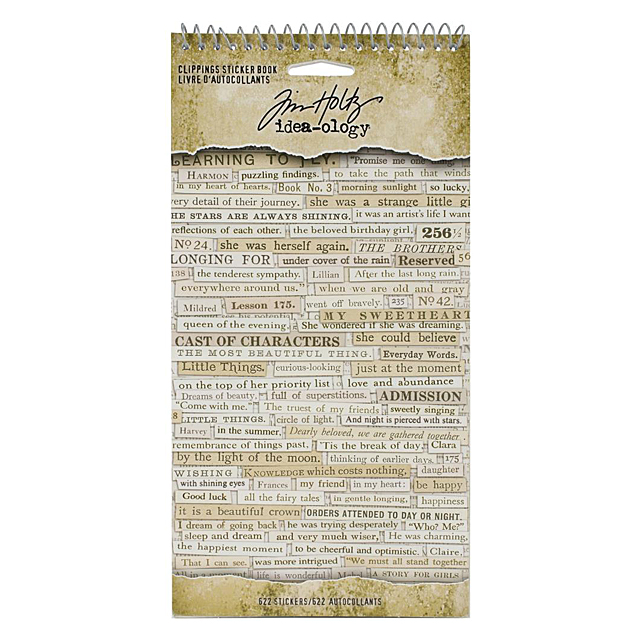 CLIPPINGS STICKER BOOK
LIVRE D'AUTOCOLLANTS
Tim Holtz
idea-ology
LEARNING TO FLY. "Promise me one thing,
HARMON puzzling findings. to take the path that winds
in my heart of hearts. Book No. 3 morning sunlight so lucky.
very detail of their journey. she was a strange little gi
HE STARS ARE ALWAYS SHINING. it was an artist's life I want
reflections of each other. the beloved birthday girl, 256 1/2
No 24. she was herself again. THE BROTHERS
LONGING FOR under cover of the rain Reserved 56
138 the tenderest sympathy. Lillian After the last long rain.
everywhere around us." when we are old and gray
Mildred Lesson 175. went off bravely. 235 No 42.
MY SWEETHEART
queen of the evening. She wondered if she was dreaming.
CAST OF CHARACTERS she could believe
THE MOST BEAUTIFUL THING. Everyday Words.
Little Things. curious-looking just at the moment
on the top of her priority list love and abundance
Dreams of beauty. full of superstitions. ADMISSION
"Come with me." The truest of my friends sweetly singing
8 LITTLE THINGS. circle of light. And night is pierced with stars.
Harvey in the summer, Dearly beloved, we are gathered together
remembrance of things past. 'Tis the break of day, Clara
by the light of the moon. thinking of earlier days. 175
WISHING KNOWLEDGE which costs nothing, daughter
with shining eyes Frances my friend in my heart: be happy
Good luck all the fairy tales in gentle longing, happiness
it is a beautiful crown ORDERS ATTENDED TO DAY OR NIGHT.
I dream of going back he was trying desperately "Who? Me?"
sleep and dream and very much wiser, He was charming.
the happiest moment to be cheerful and optimistic. Claire,
That I can see. was more intrigued "We must all stand together
life is wonderful A STORY FOR GIRLS
622 STICKERS/622 AUTOCOLLANTS